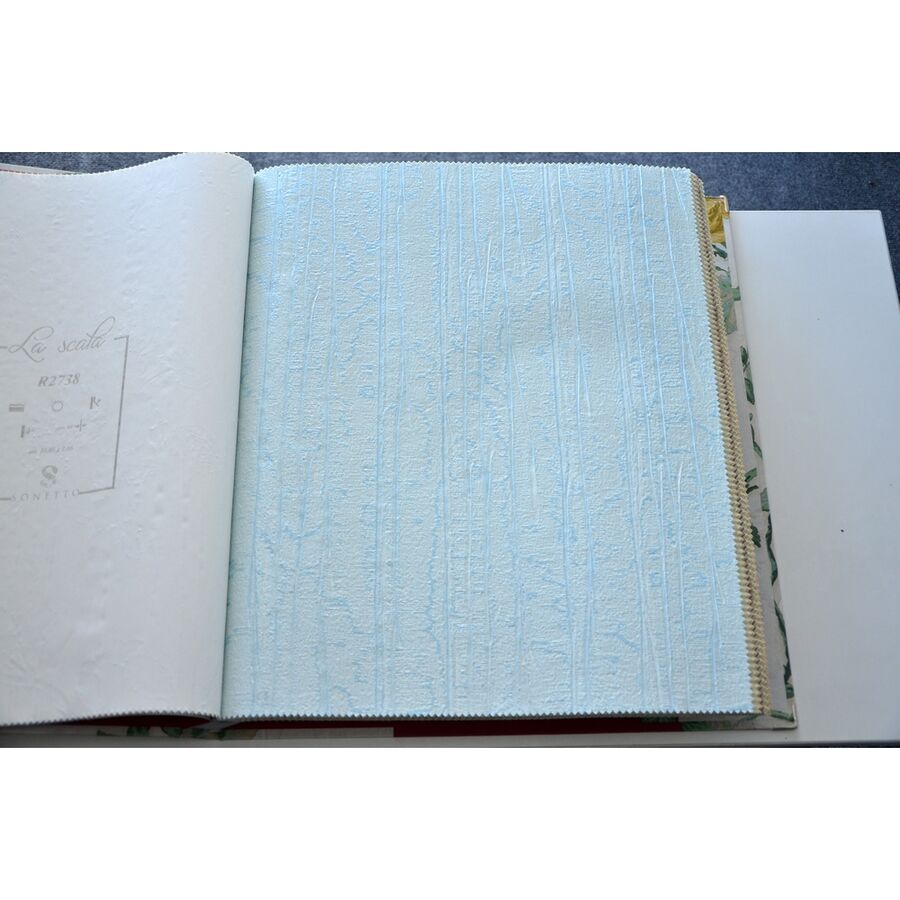 La scala
R2738
SONETTO